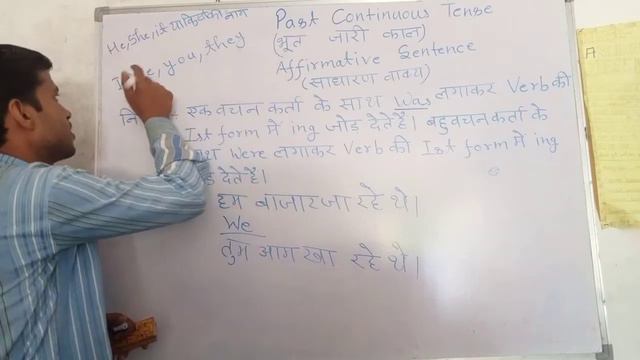 He, She, it या किसी का नाम
you, they
Past Continuous Tense
(भूत जारी काल)
Affirmative Sentence
(साधारण वाक्य)
एक वचन कर्ता के साथ Was लगाकर Verb की
Ist form में ing जोड़ देते हैं। बहुवचन कर्ता के
Were लगाकर Verb की Ist form में ing
देते हैं।
हम बाजार जा रहे थे।
We
तुम आग खा रहे थे।
A